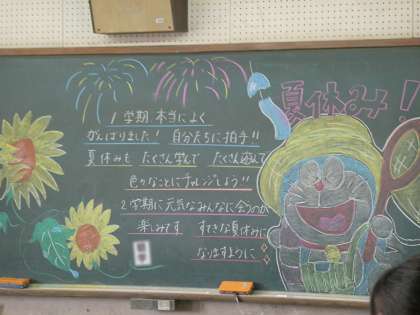 夏休み!
1学期 本当によく
がんばりました! 自分たちに拍手!!
夏休みも たくさん学んで たくさん遊んで
色々なことにチャレンジしよう!!
2学期に元気なみんなに会うのが
楽しみです すてきな夏休みに
なりますように